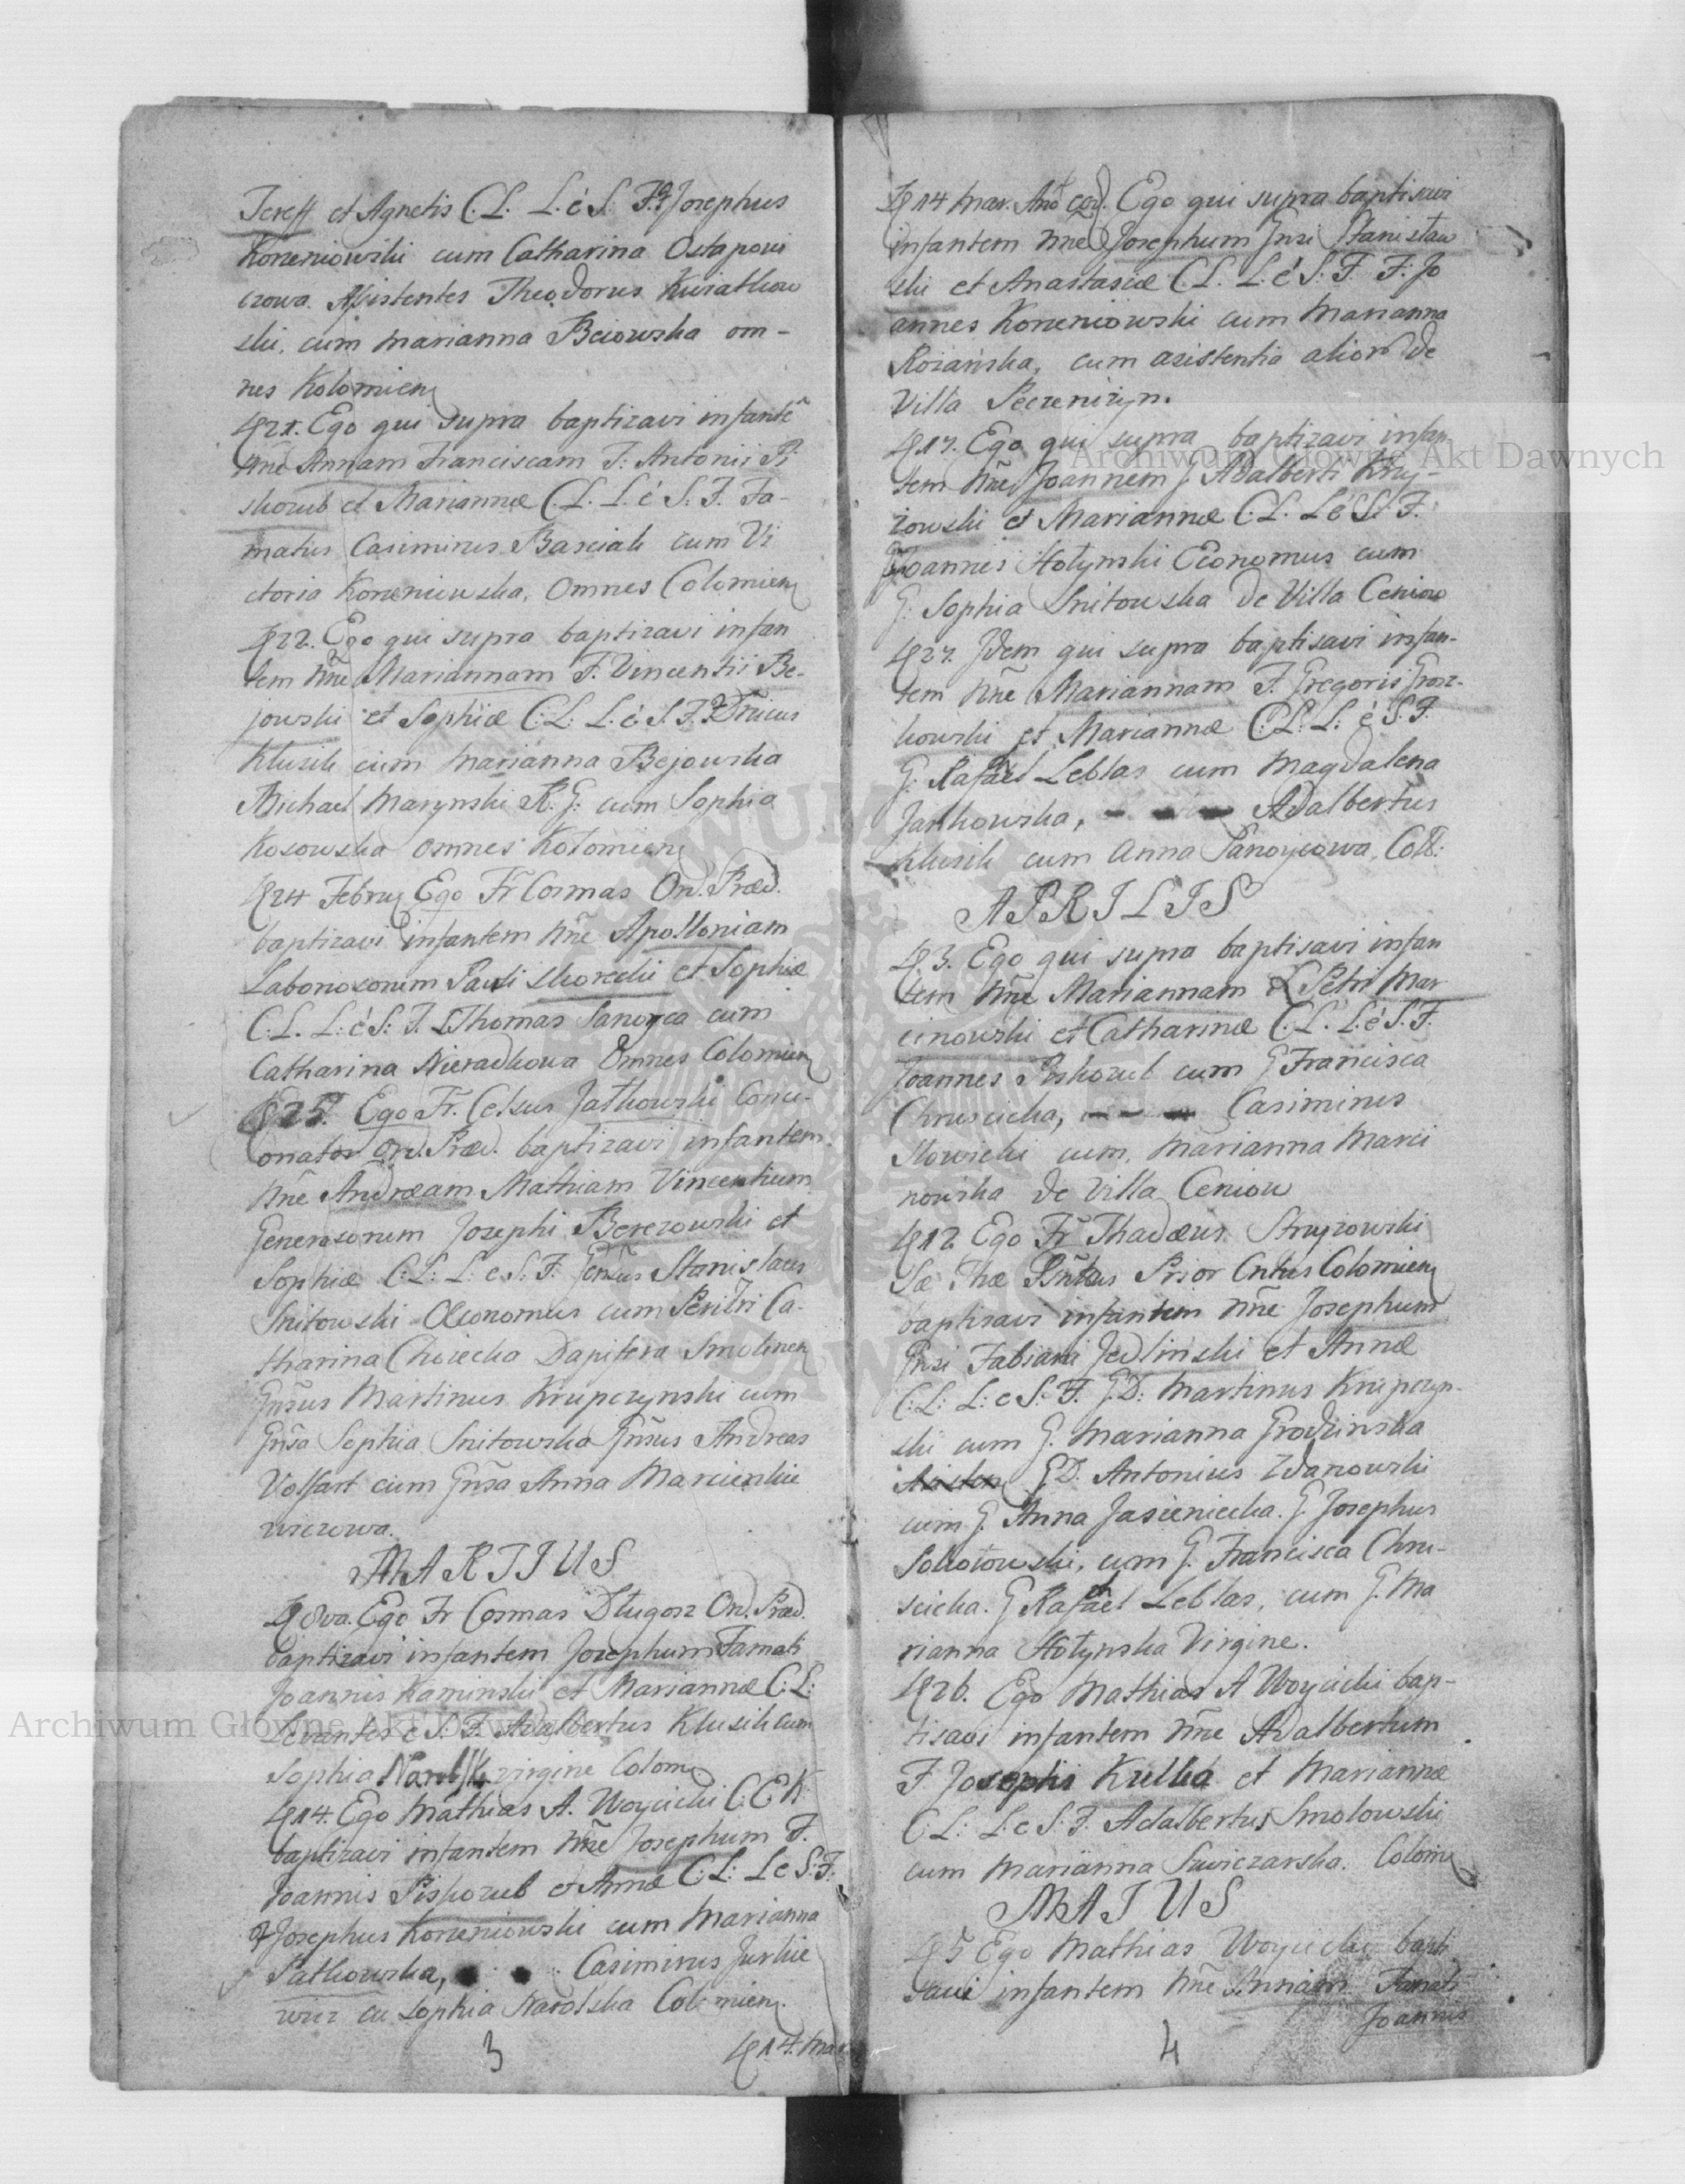 Jereff et Agnetis C.L. L. é S. F. Josephus
Korzeniowski cum Catharina Ostapowi
czowa. Assistentes Theodorus Kwiatkow
ski, cum Marianna Beiowska om-
nes Kolomien
21. Ego qui supra baptizavi infantẽ
nñe Annam Franciscam F: Antonii Pi
skozub et Mariannæ C.L. L. é S. F. Fa-
matus Casimirus Barciak cum Vi
ctoria Korzeniowska, Omnes Colomien
22. Ego qui supra baptizavi infan
tem nñe Mariannam F. Vincentii Be-
jowski et Sophiæ C.L. L. é S. F. Dñicus
Klusik cum Marianna Bejowska
Michael Marynski R. G. cum Sophia
Kosowska omnes Kołomien
24 Febru Ego Fr Cosmas Ord. Præd.
baptizavi infantem nñe Apolloniam
Laboriosorum Pauli Skorecki et Sophiæ
C.L. L: é S: F. Thomas Sanoyca cum
Catharina Nieradkowa Omnes Colomien
25. Ego Fr. Celsus Jatkowski Conci-
onator Ord. Præd. baptizavi infantem
nñe Andræam Mathiam Vincentium
Generosorum Josephi Berezowski et
Sophiæ C.L: L: e S. F. Gensus Stanislaus
Snitowski Œconomus cum Perillri Ca-
tharina Chojecka Dapifera Smolinen
Gnsus Martinus Krupczynski cum
Gnsa Sophia Snitowska Gnsus Andreas
Volfart cum Gnsa Anna Marcienkie
wiczowa.
MARTIUS
8va. Ego Fr Cosmas Długosz Ord. Præd.
baptizavi infantem Josephum Famati
Joannis Kaminski et Mariannæ C: L:
Levantes e S. F. Adalbertus Klusik cum
Sophia virgine Colom
14. Ego Mathias A. Woycicki C.C.K.
baptizavi infantem nñe Josephum F.
Joannis Piskozub et Annæ C: L: L e S: F:
Josephus Korzeniowski cum Marianna
Patkowska, Casimirus Jurkie
wicz cu Sophia Narolska Colomien.
14. Mar
3
14 Mar. Añ eod. Ego qui supra baptisavi
infantem nñe Josephum Gnsi Stanisław
ski et Anastasiæ C.L. L. é S. F. F: Jo
annes Korzeniowski cum Marianna
Rozańska, cum asistentia alior de
Villa Peczenizyn.
17. Ego qui supra baptizavi infan
tem nñe Joannem G Adalberti Krzy-
zowski et Mariannæ C.L. L é S. F.
Joannes Hołynski Economus cum
G. Sophia Snitowska de Villa Ceniow
27. Idem qui supra baptisavi infan-
tem nñe Mariannam F. Gregoris Grosz-
kowski et Mariannæ C.L. L. é S. F.
G. Rafael Leblas cum Magdalena
Jatkowska, Adalbertus
Klusik cum Anna Sanoycowa, Coll:
APRILIS
3. Ego qui supra baptisavi infan
tem nñe Mariannam Petri Mar
cinowski et Catharinæ C.L. L. é S. F.
Joannes Piskozub cum G Francisca
Chruscicka, Casimirus
Nowicki cum, Marianna Marci
nowska de Villa Ceniow
12 Ego Fr Thadæus Struyzowski
Sæ Thæ Prior Cntus Colomien
baptizavi infantem nñe Josephum
Gnsi Fabiani Jedlinski et Annæ
C: L: L: e S: F. G.D: Martinus Krupczyn-
ski cum G. Marianna Grodzinska
G.D. Antonius Zdanowski
cum G. Anna Jasieniecka. G Josephus
Sokołowski, cum G. Francisca Chru-
scicka. G Rafael Leblas, cum G. Ma
rianna Hołynska Virgine.
26. Ego Mathias A Woycicki bap-
tisavi infantem nñe Adalbertum
F. Josephi Kulka et Mariannæ
C L: L. e S: F. Adalbertus Smolowski
cum Marianna Swiczarska. Colom
MAIUS
5 Ego Mathias Woycicki bapti
savi infantem nñe Annam Famati
Joannis
4
Archiwum Główne Akt Dawnych
Archiwum Główne Akt Dawnych